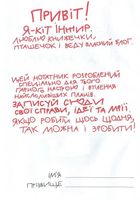 ПРИВІТ!
Я-КІТ ІНЖИР.
ЛЮБЛЮ КНИЖЕЧКИ,
ПТАШЕЧОК І ВЕДУ ВЛАСНИЙ БЛОГ.
ЦЕЙ НОТАТНИК РОЗРОБЛЕНИЙ
СПЕЦІАЛЬНО ДЛЯ ТВОГО
ГАРНОГО НАСТРОЮ І ВТІЛЕННЯ
НАЙСМІЛИВІШИХ ПЛАНІВ.
ЗАПИСУЙ СЮДИ
СВОЇ СПРАВИ, ІДЕЇ ТА МРІЇ.
ЯКЩО РОБИТИ ЩОСЬ ЩОДНЯ,
ТАК МОЖНА І ЗРОБИТИ!
ІМ'Я
ПРІЗВИЩЕ